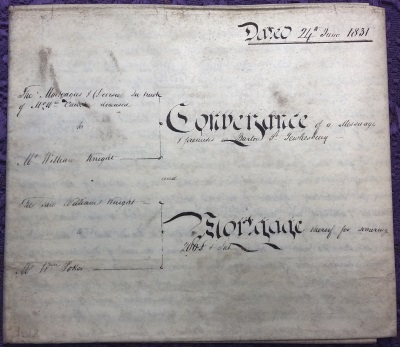 Dated 24th June 1831
The Mortgagee & Devisees in trust
of Mr Wm deceased
to
Mr William Knight
Conveyance of a Messuage
& premises in Barton St Tewkesbury
and
The said William Knight
to
Mr Wm
Mortgage thereof for securing
& Int.